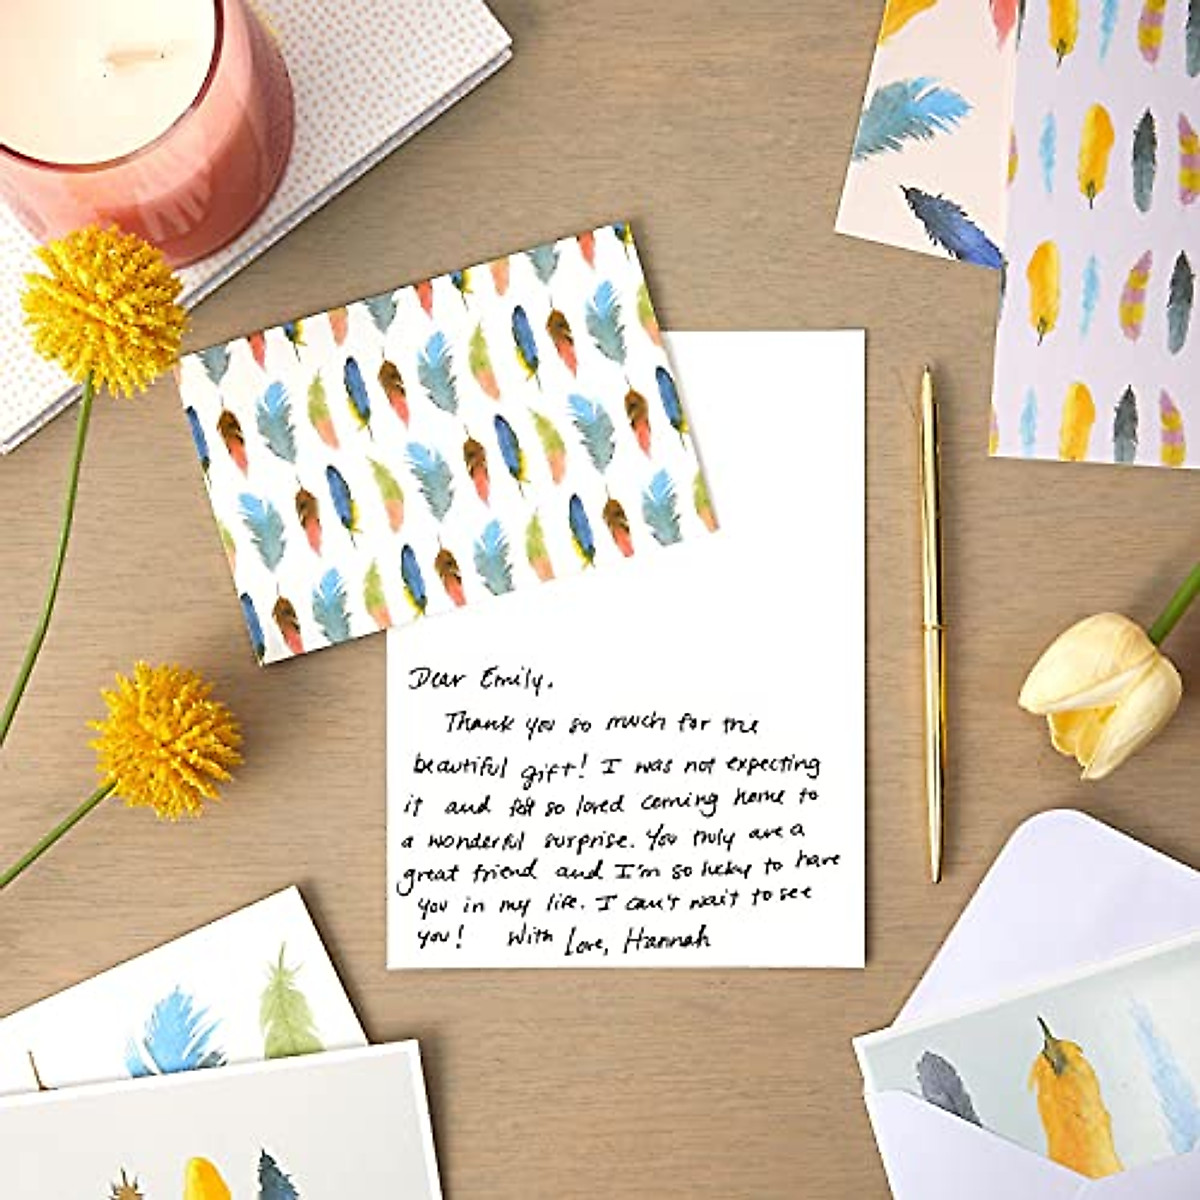 Dear Emily,
Thank you so much for the
beautiful gift! I was not expecting
it and felt so loved coming home to
a wonderful surprise. You truly are a
great friend and I'm so lucky to have
you in my life. I can't wait to see
you! With Love, Hannah